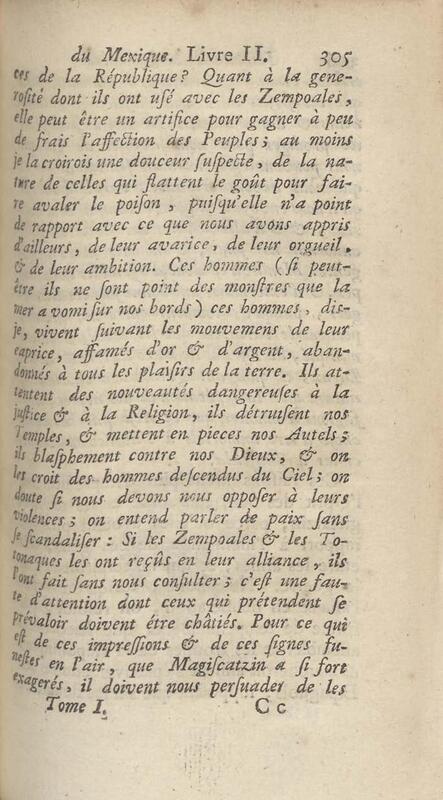 du Mexique. Livre II. 305
ces de la République? Quant à la gene-
rosité dont ils ont usé avec les Zempoales,
elle peut être un artifice pour gagner à peu
de frais l'affection des Peuples; au moins
je la croirois une douceur suspecte, de la na-
ture de celles qui flattent le goût pour fai-
re avaler le poison, puisqu'elle n'a point
de rapport avec ce que nous avons appris
d'ailleurs, de leur avarice, de leur orgueil,
& de leur ambition. Ces hommes (si peut-
être ils ne sont point des monstres que la
mer a vomi sur nos bords) ces hommes, dis-
je, vivent suivant les mouvemens de leur
caprice, affamés d'or & d'argent, aban-
donnés à tous les plaisirs de la terre. Ils at-
tentent des nouveautés dangereuses à la
justice & à la Religion, ils détruisent nos
Temples, & mettent en pieces nos Autels;
ils blasphement contre nos Dieux, & on
les croit des hommes descendus du Ciel; on
doute si nous devons nous opposer à leurs
violences; on entend parler de paix sans
se scandaliser: Si les Zempoales & les To-
tonaques les ont reçûs en leur alliance, ils
l'ont fait sans nous consulter; c'est une fau-
te d'attention dont ceux qui prétendent se
prévaloir doivent étre châtiés. Pour ce qui
est de ces impressions & de ces signes fu-
nestes en l'air, que Magiscatzin a si fort
exagerés, il doivent nous persuader de les
Tome I. Cc